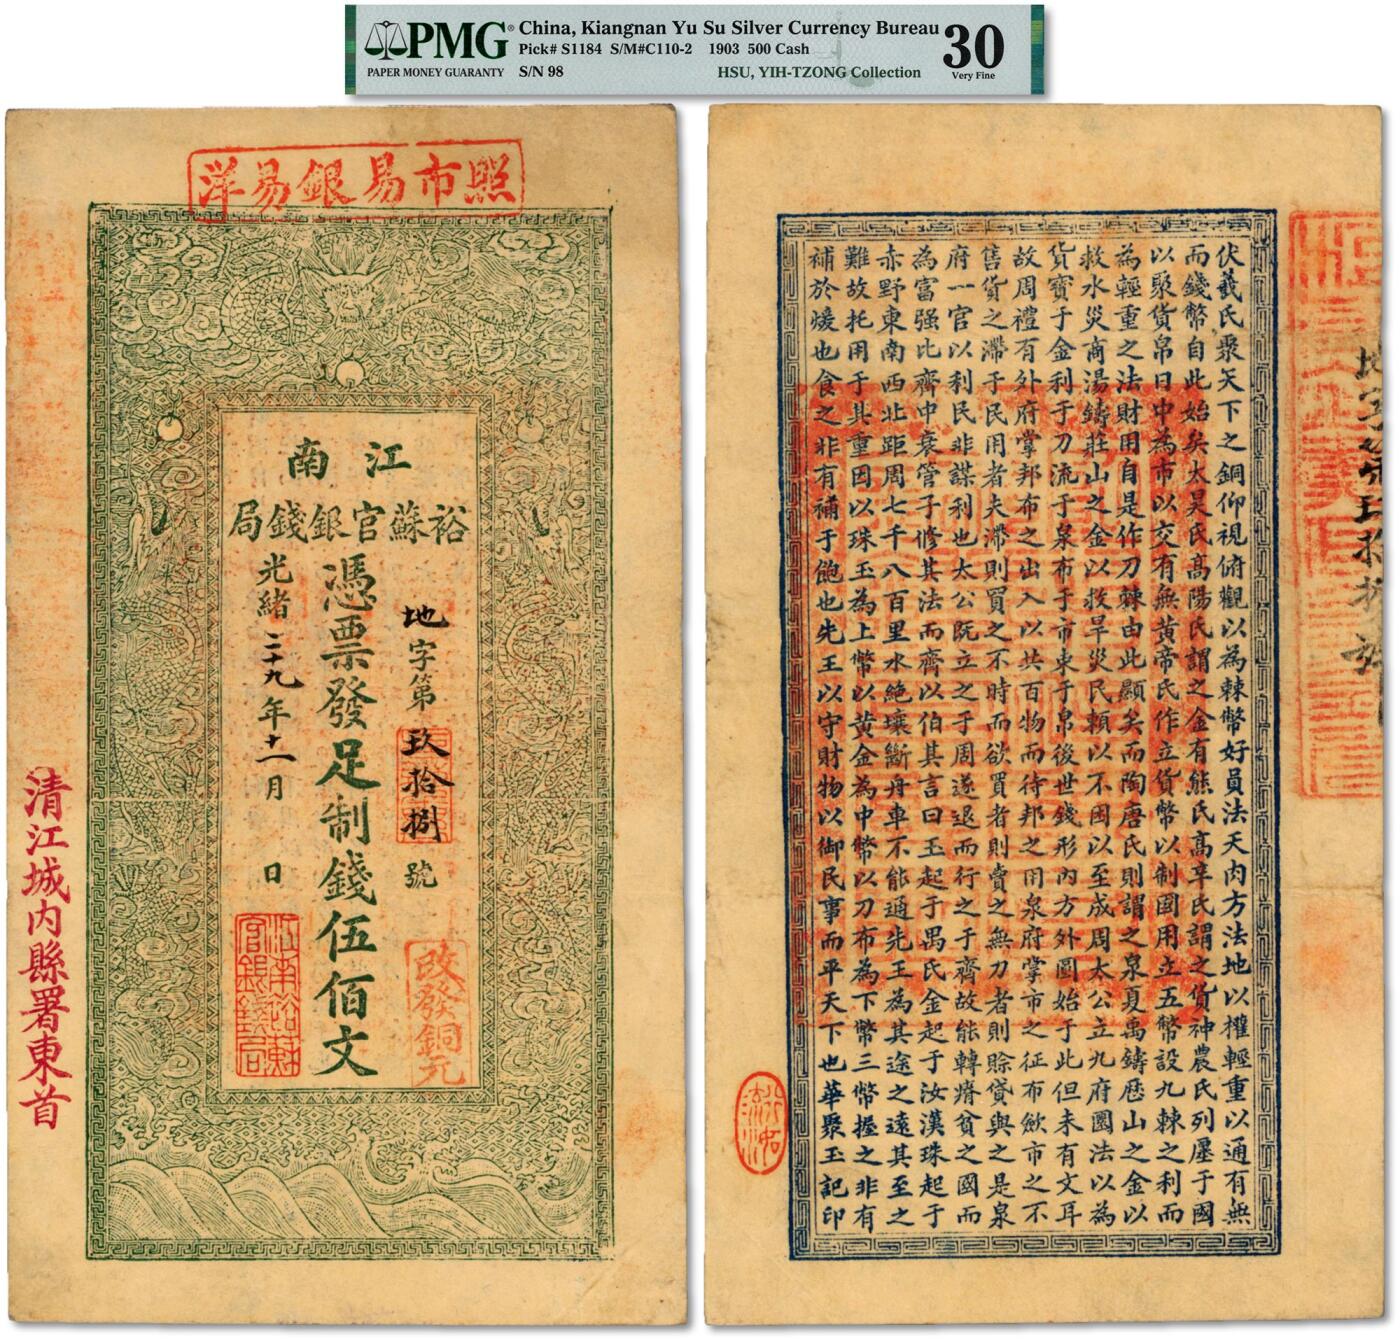 PMG
PAPER MONEY GUARANTY
China, Kiangnan Yu Su Silver Currency Bureau
Pick# S1184 S/M#C110-2 1903 500 Cash
S/N 98
HSU, YIH-TZONG Collection
30
Very Fine
照市易銀易洋
江南
裕蘇官銀錢局
地字第玖拾捌號
憑票發足制錢伍佰文
光緒二十九年十一月 日
改發銅元
江南裕蘇官銀錢局
清江城內縣署東首
伏羲氏聚天下之銅仰視俯觀以為棘幣好員法天內方法地以權輕重以通有無
而錢幣自此始矣太昊氏高陽氏謂之金有熊氏高辛氏謂之貨神農氏列廛于國
以聚貨帛日中為市以交有無黃帝氏作立貨幣以制國用立五幣設九棘之利而
為輕重之法財用自是作刀棘由此顯矣而陶唐氏則謂之泉夏禹鑄歷山之金以
救水災商湯鑄莊山之金以救旱災民賴以不困以至成周太公立九府圜法以為
貨寶于金利于刀流于泉布于市束于帛後世錢形內方外圓始于此但未有文耳
故周禮有外府掌邦布之出入以共百物而待邦之用泉府掌市之征布斂市之不
售貨之滯于民用者夫滯則買之不時而欲買者則賣之無刀者則賒貸與之是泉
府一官以利民非謀利也太公既立之于周遂退而行之于齊故能轉瘠貧之國而
為富强比齊中衰管子修其法而齊以伯其言曰玉起于禺氏金起于汝漢珠起于
赤野東南西北距周七千八百里水絕壤斷舟車不能通先王為其途之遠其至之
難故托用于其重因以珠玉為上幣以黃金為中幣以刀布為下幣三幣握之非有
補於煖也食之非有補于飽也先王以守財物以御民事而平天下也華聚玉記印